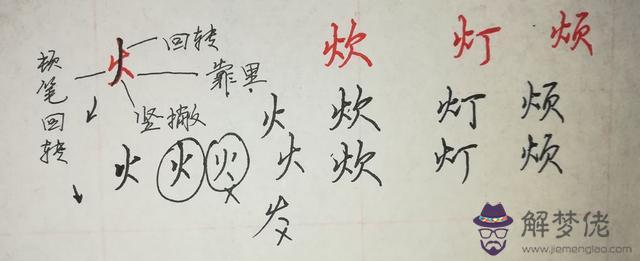 火 回转 炊 灯 烦
顿笔回转
靠里
竖撇
火 炊 灯 烦
火 火 火 火 炊 灯 烦
解梦佬
www.jiemenglao.com